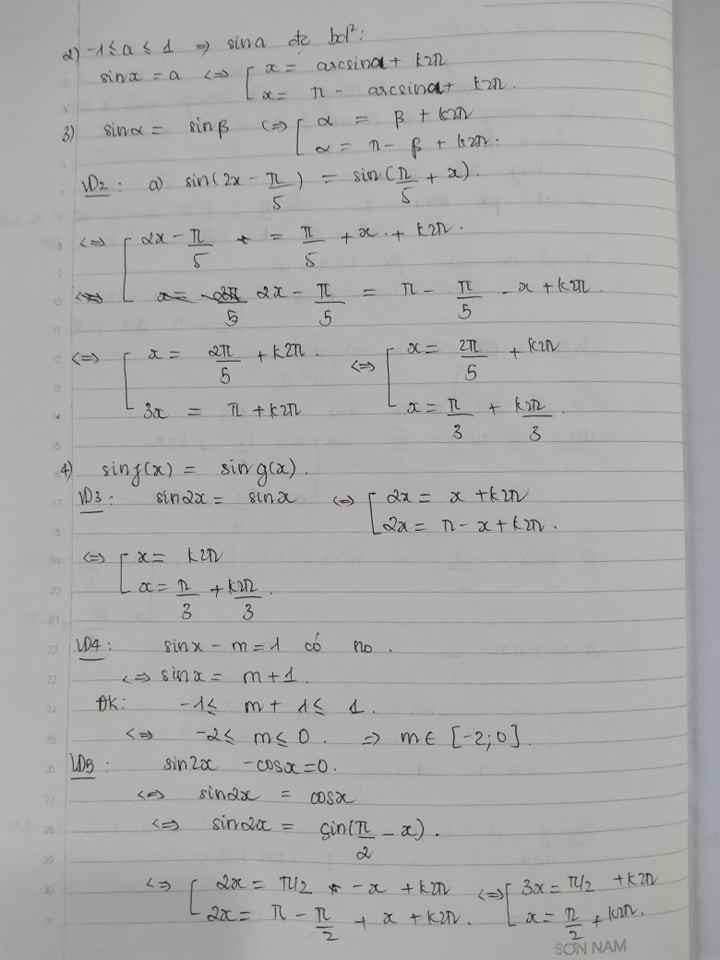 2) -1 ≤ a ≤ 1 => sina đc bd²:
sinx = a <=> [ x = arcsina + k2π
x = π - arcsina + k2π.
3) sinα = sinβ <=> [ α = β + k2π
α = π - β + k2π.
VD2: a) sin(2x - π/5) = sin(π/5 + x).
<=> [ 2x - π/5 = π/5 + x + k2π.
2x - π/5 = π - π/5 - x + k2π
<=> [ x = 2π/5 + k2π. <=> [ x = 2π/5 + k2π
3x = π + k2π x = π/3 + k2π/3.
4) sinf(x) = sing(x).
VD3: sin2x = sinx <=> [ 2x = x + k2π
2x = π - x + k2π.
<=> [ x = k2π
x = π/3 + k2π/3.
VD4: sinx - m = 1 có no.
<=> sinx = m + 1.
ĐK: -1 ≤ m + 1 ≤ 1.
<=> -2 ≤ m ≤ 0. => m ∈ [-2;0].
VD5: sin2x - cosx = 0.
<=> sin2x = cosx
<=> sin2x = sin(π/2 - x).
<=> [ 2x = π/2 - x + k2π <=> [ 3x = π/2 + k2π
2x = π - π/2 + x + k2π. x = π/2 + k2π.
SON NAM